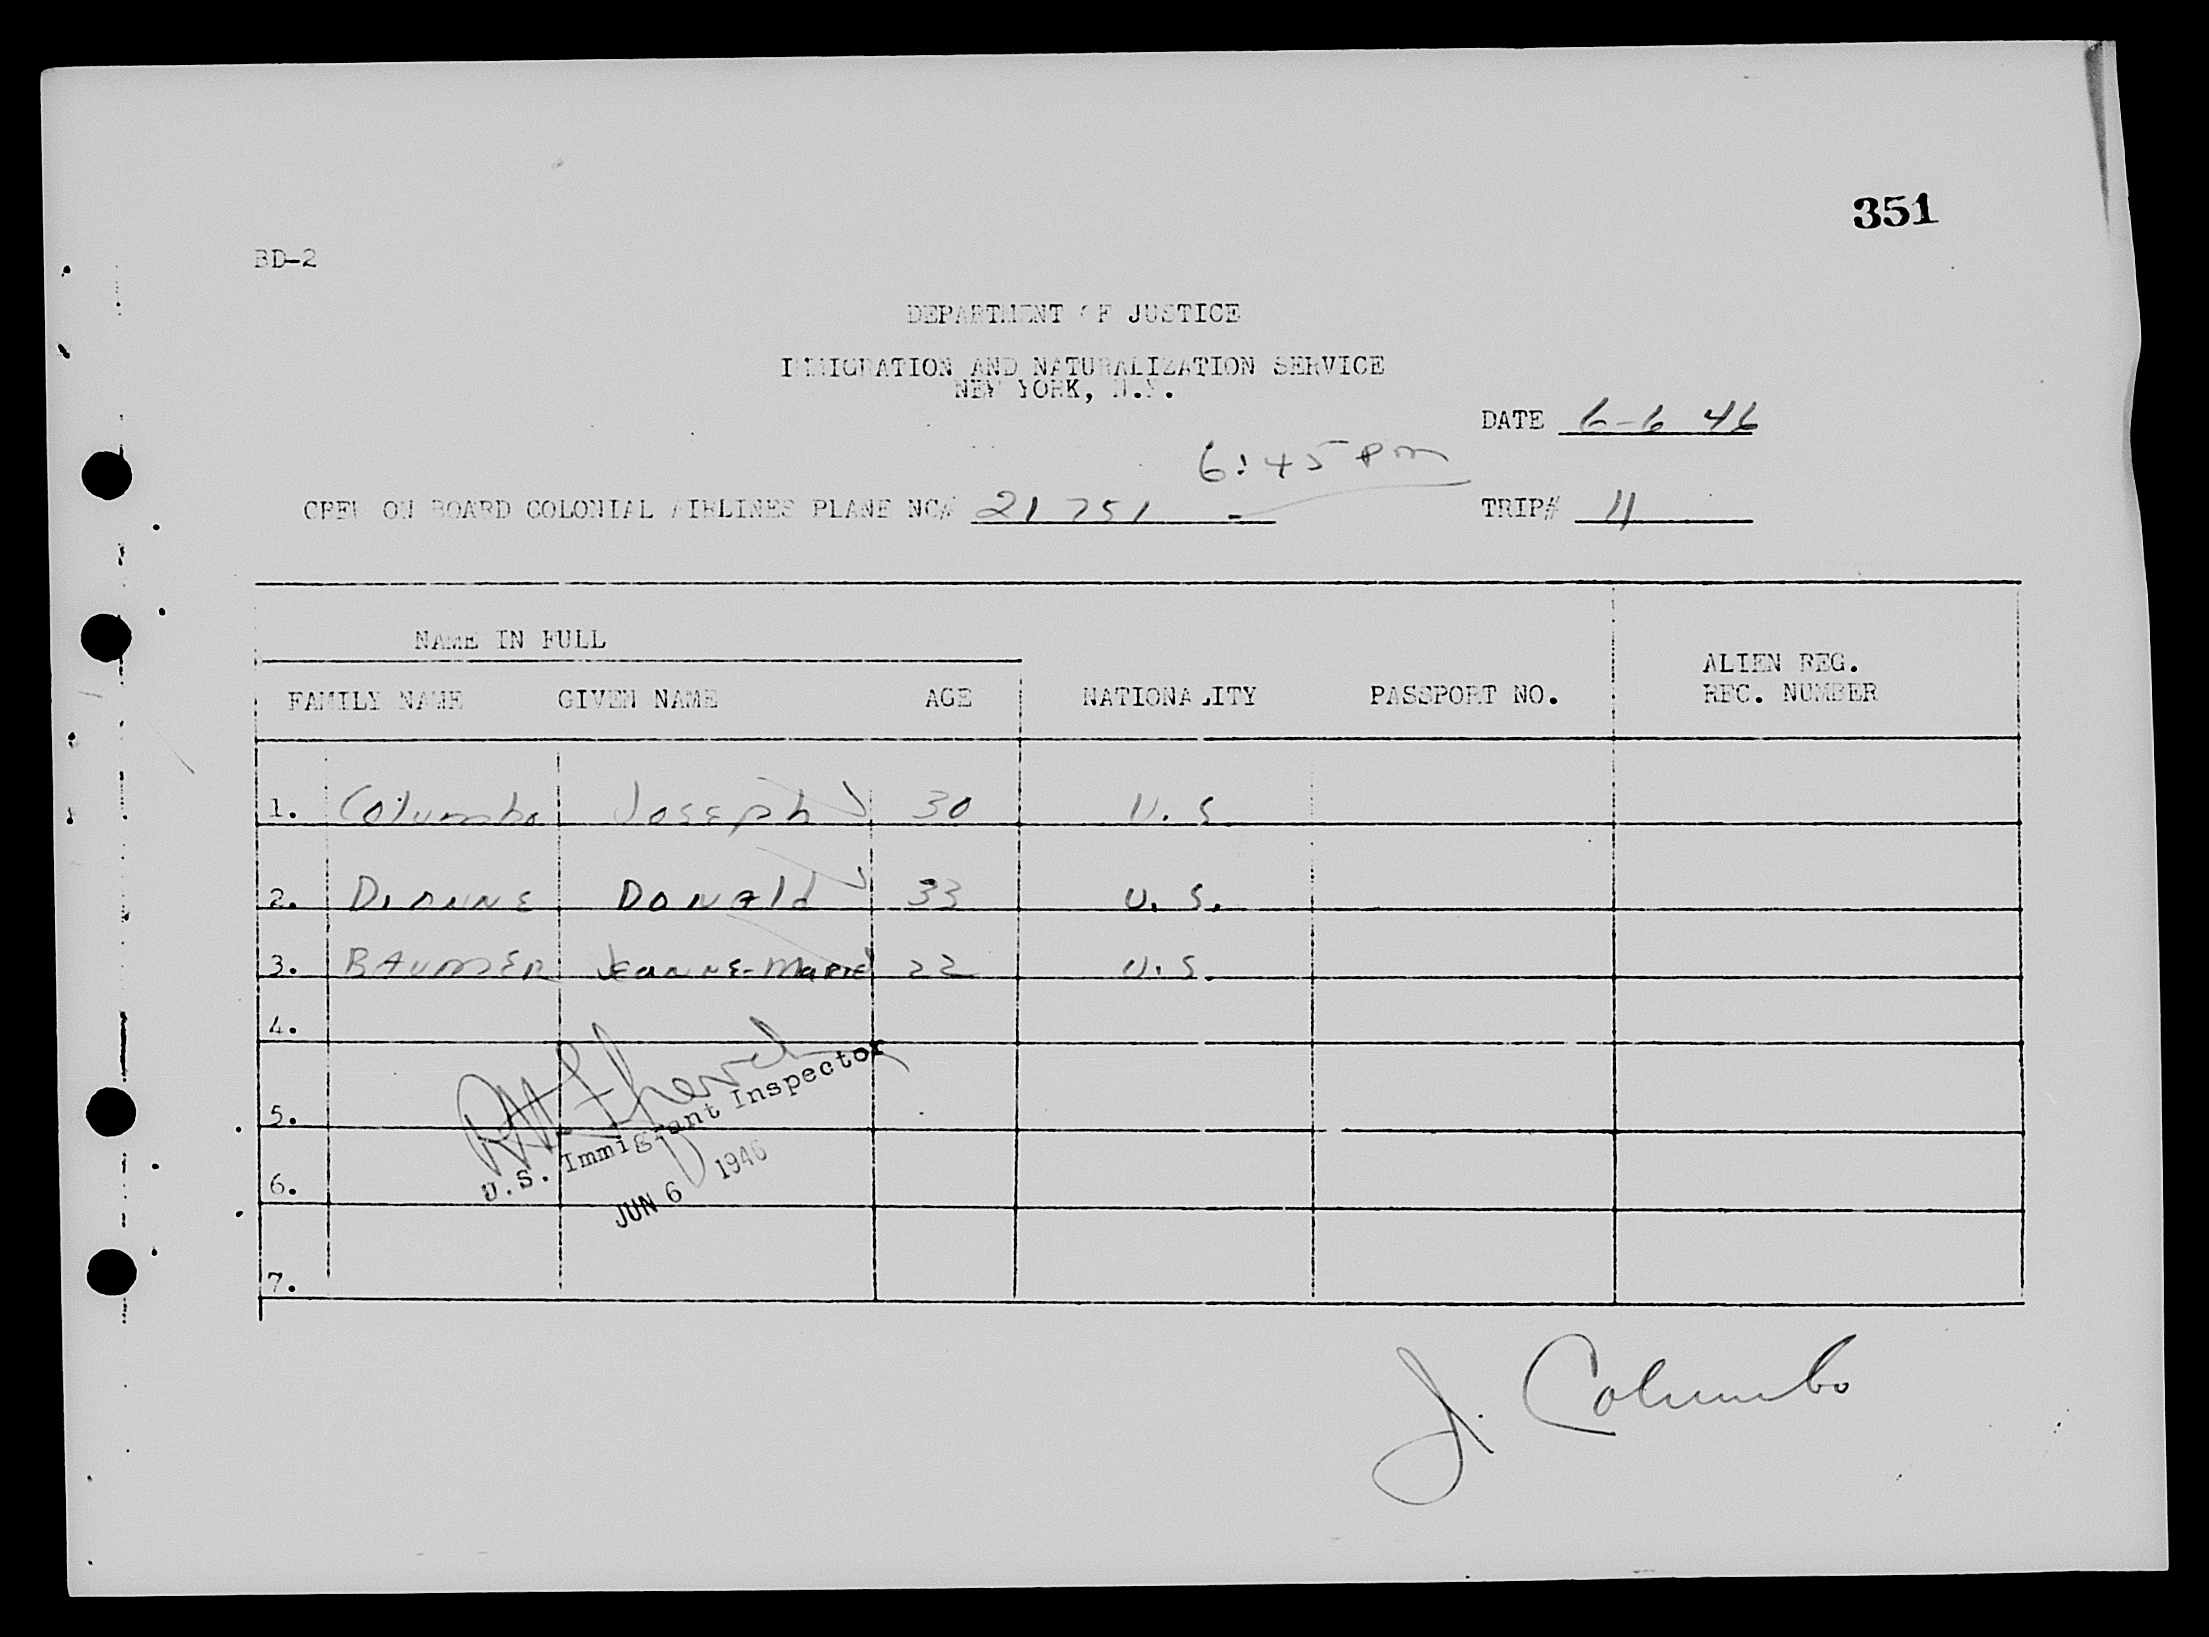 351
BD-2
DEPARTMENT OF JUSTICE
IMMIGRATION AND NATURALIZATION SERVICE
NEW YORK, N.Y.
DATE 6-6 46
6:45 pm
CREW ON BOARD COLONIAL AIRLINES PLANE NC# 21751 -
TRIP# 11
NAME IN FULL
FAMILY NAME GIVEN NAME AGE NATIONALITY PASSPORT NO. ALIEN REG. REC. NUMBER
1. Columbo Joseph 30 U.S
2. DIONNE DONALd 33 U.S.
3. BAUMER JEANNE-MARIE 22 U.S.
4.
5.
6.
U.S. Immigrant Inspector
JUN 6 1946
7.
J. Columbo